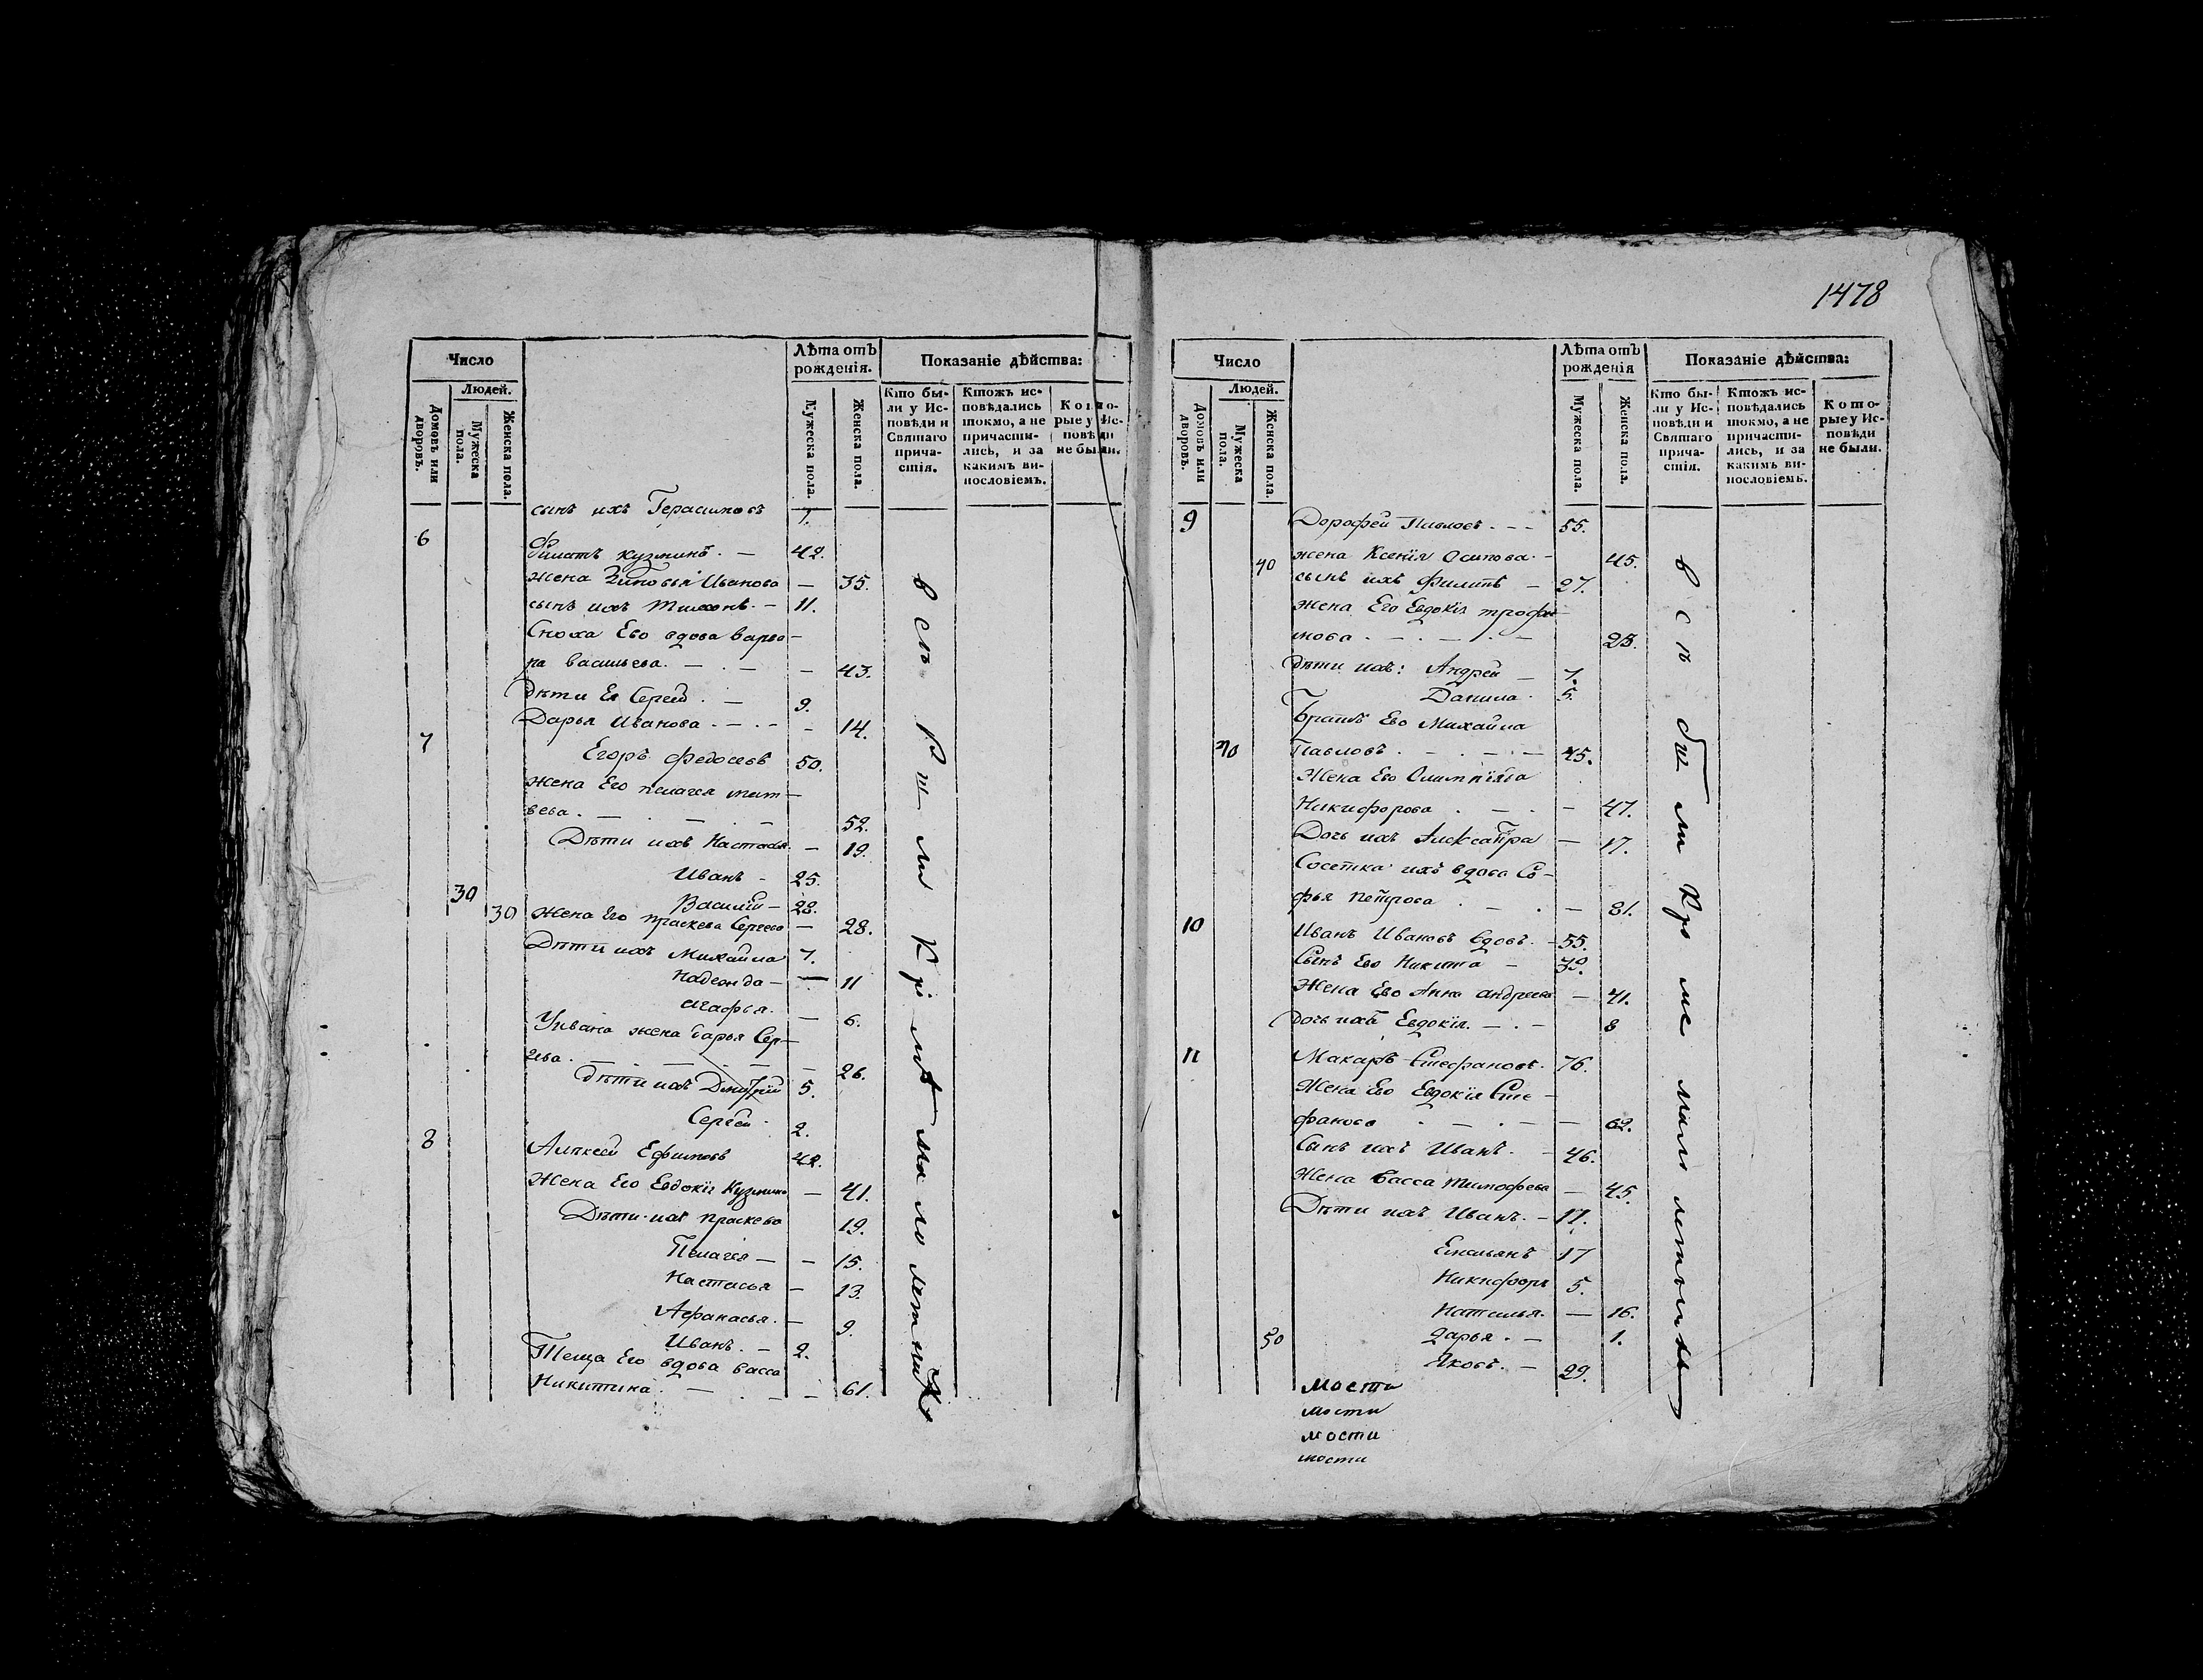 1478
Число
Лѣта отъ рожденія.
Показаніе дѣйства:
Людей.
Домовъ или дворовъ.
Мужеска пола.
Женска пола.
Мужеска пола.
Женска пола.
Кто бы-
ли у Ис-
повѣди и
Святаго
прича-
стія.
Ктожъ ис-
повѣдались
токмо, а не
причасти-
лись, и за
какимъ ви-
нословіемъ.
Кото-
рые у Ис-
повѣди
не были.
сынъ ихъ Герасимовъ 7.
6 Филатъ Кузминъ. — 42.
жена Зиновья Иванова — 35.
сынъ ихъ Тихонъ. — 11.
Сноха Его вдова варва—
ра васильева. — . — — 43.
Дѣти Ея Сергей . — 9.
Дарья Иванова . — . — - 14.
7 Егоръ Федосеевъ 50.
жена Его пелагея мат—
веева . — . — . — 52.
Дѣти ихъ Настасья. — 19.
Иванъ - 25.
30 Василій — 28.
30 Жена Его праскева Сергеева — 28.
Дѣти ихъ Михайла 7.
Надежда — — 11
агафья. — 6.
Уивана жена дарья Сер—
геева . — . — . — . — — 26.
дѣти ихъ Дмитрій 5.
Сергей . 2.
8 Алексей Ефимовъ 42.
Жена Его Евдокія Кузмина — 41.
Дѣти ихъ праскева 19.
Пелагея — — 15.
Настасья — 13.
Афанасья . — 9.
Иванъ . — 2.
Теща Его вдова васса
Никитина . — . — — 61.
всѣ
Число
Лѣта отъ рожденія
Показаніе дѣйства:
Людей.
Домовъ или дворовъ.
Мужеска пола.
Женска пола.
Мужеска пола.
Женска пола.
Кто бы-
ли у Ис-
повѣди и
Святаго
прича-
стія.
Ктожъ ис-
повѣдались
токмо, а не
причасти-
лись, и за
какимъ ви-
нословіемъ.
Кото-
рые у Ис-
повѣди
не были.
9 Дорофей Павловъ . - - 55.
40 жена Ксенія Осипова . - 45.
сынъ ихъ Филипъ — 27.
жена Его Евдокія трофи—
мова . — . — . — 25.
Дѣти ихъ: Андрей — 7.
Данила . 5.
Братъ Его Михайла
40 Павловъ . — . — . — 45.
Жена Его Олимпіяда
Никифорова . — . — 47.
Дочь ихъ Александра — 17.
вдова Со—
фья Петрова . — . — 81.
10 Иванъ Ивановъ вдовъ. - 55.
Сынъ Его Никита — 39.
Жена Его Анна андреева — 41.
дочь ихъ Евдокія. — . — 8
11 Макаръ Стефановъ. 76.
Жена Его Евдокія Сте —
фанова . — . — — 62.
Сынъ ихъ Иванъ. - 46.
Жена Васса Тимофеева — 45.
Дѣти ихъ Иванъ. — 17.
Емельянъ 17
Никифоръ 5.
Наталья. — 16.
50 дарья . — 1.
Яковъ. — 29.
всѣ были кроме малолетныхъ
мости
мости
мости
мости